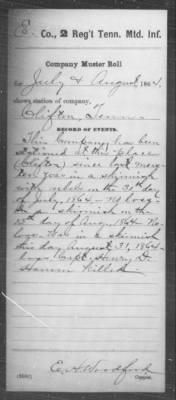 E. Co., 2 Reg't Tenn. Mtd. Inf.
Company Muster Roll
for July & August, 1864,
shows station of company,
Clifton, Tenn.
RECORD OF EVENTS.
This company has been
stationed at this place
Clifton, since last muster
was in a skirmish
with rebels on the 30th day
of July, 1864 - No loss
in a skirmish on the
15th day of Aug. 1864 No
loss. Was in a skirmish
this day August 31, 1864 -
loss Capt. Henry D.
Hamm Killed.
E. A. Woodford
Copyist.